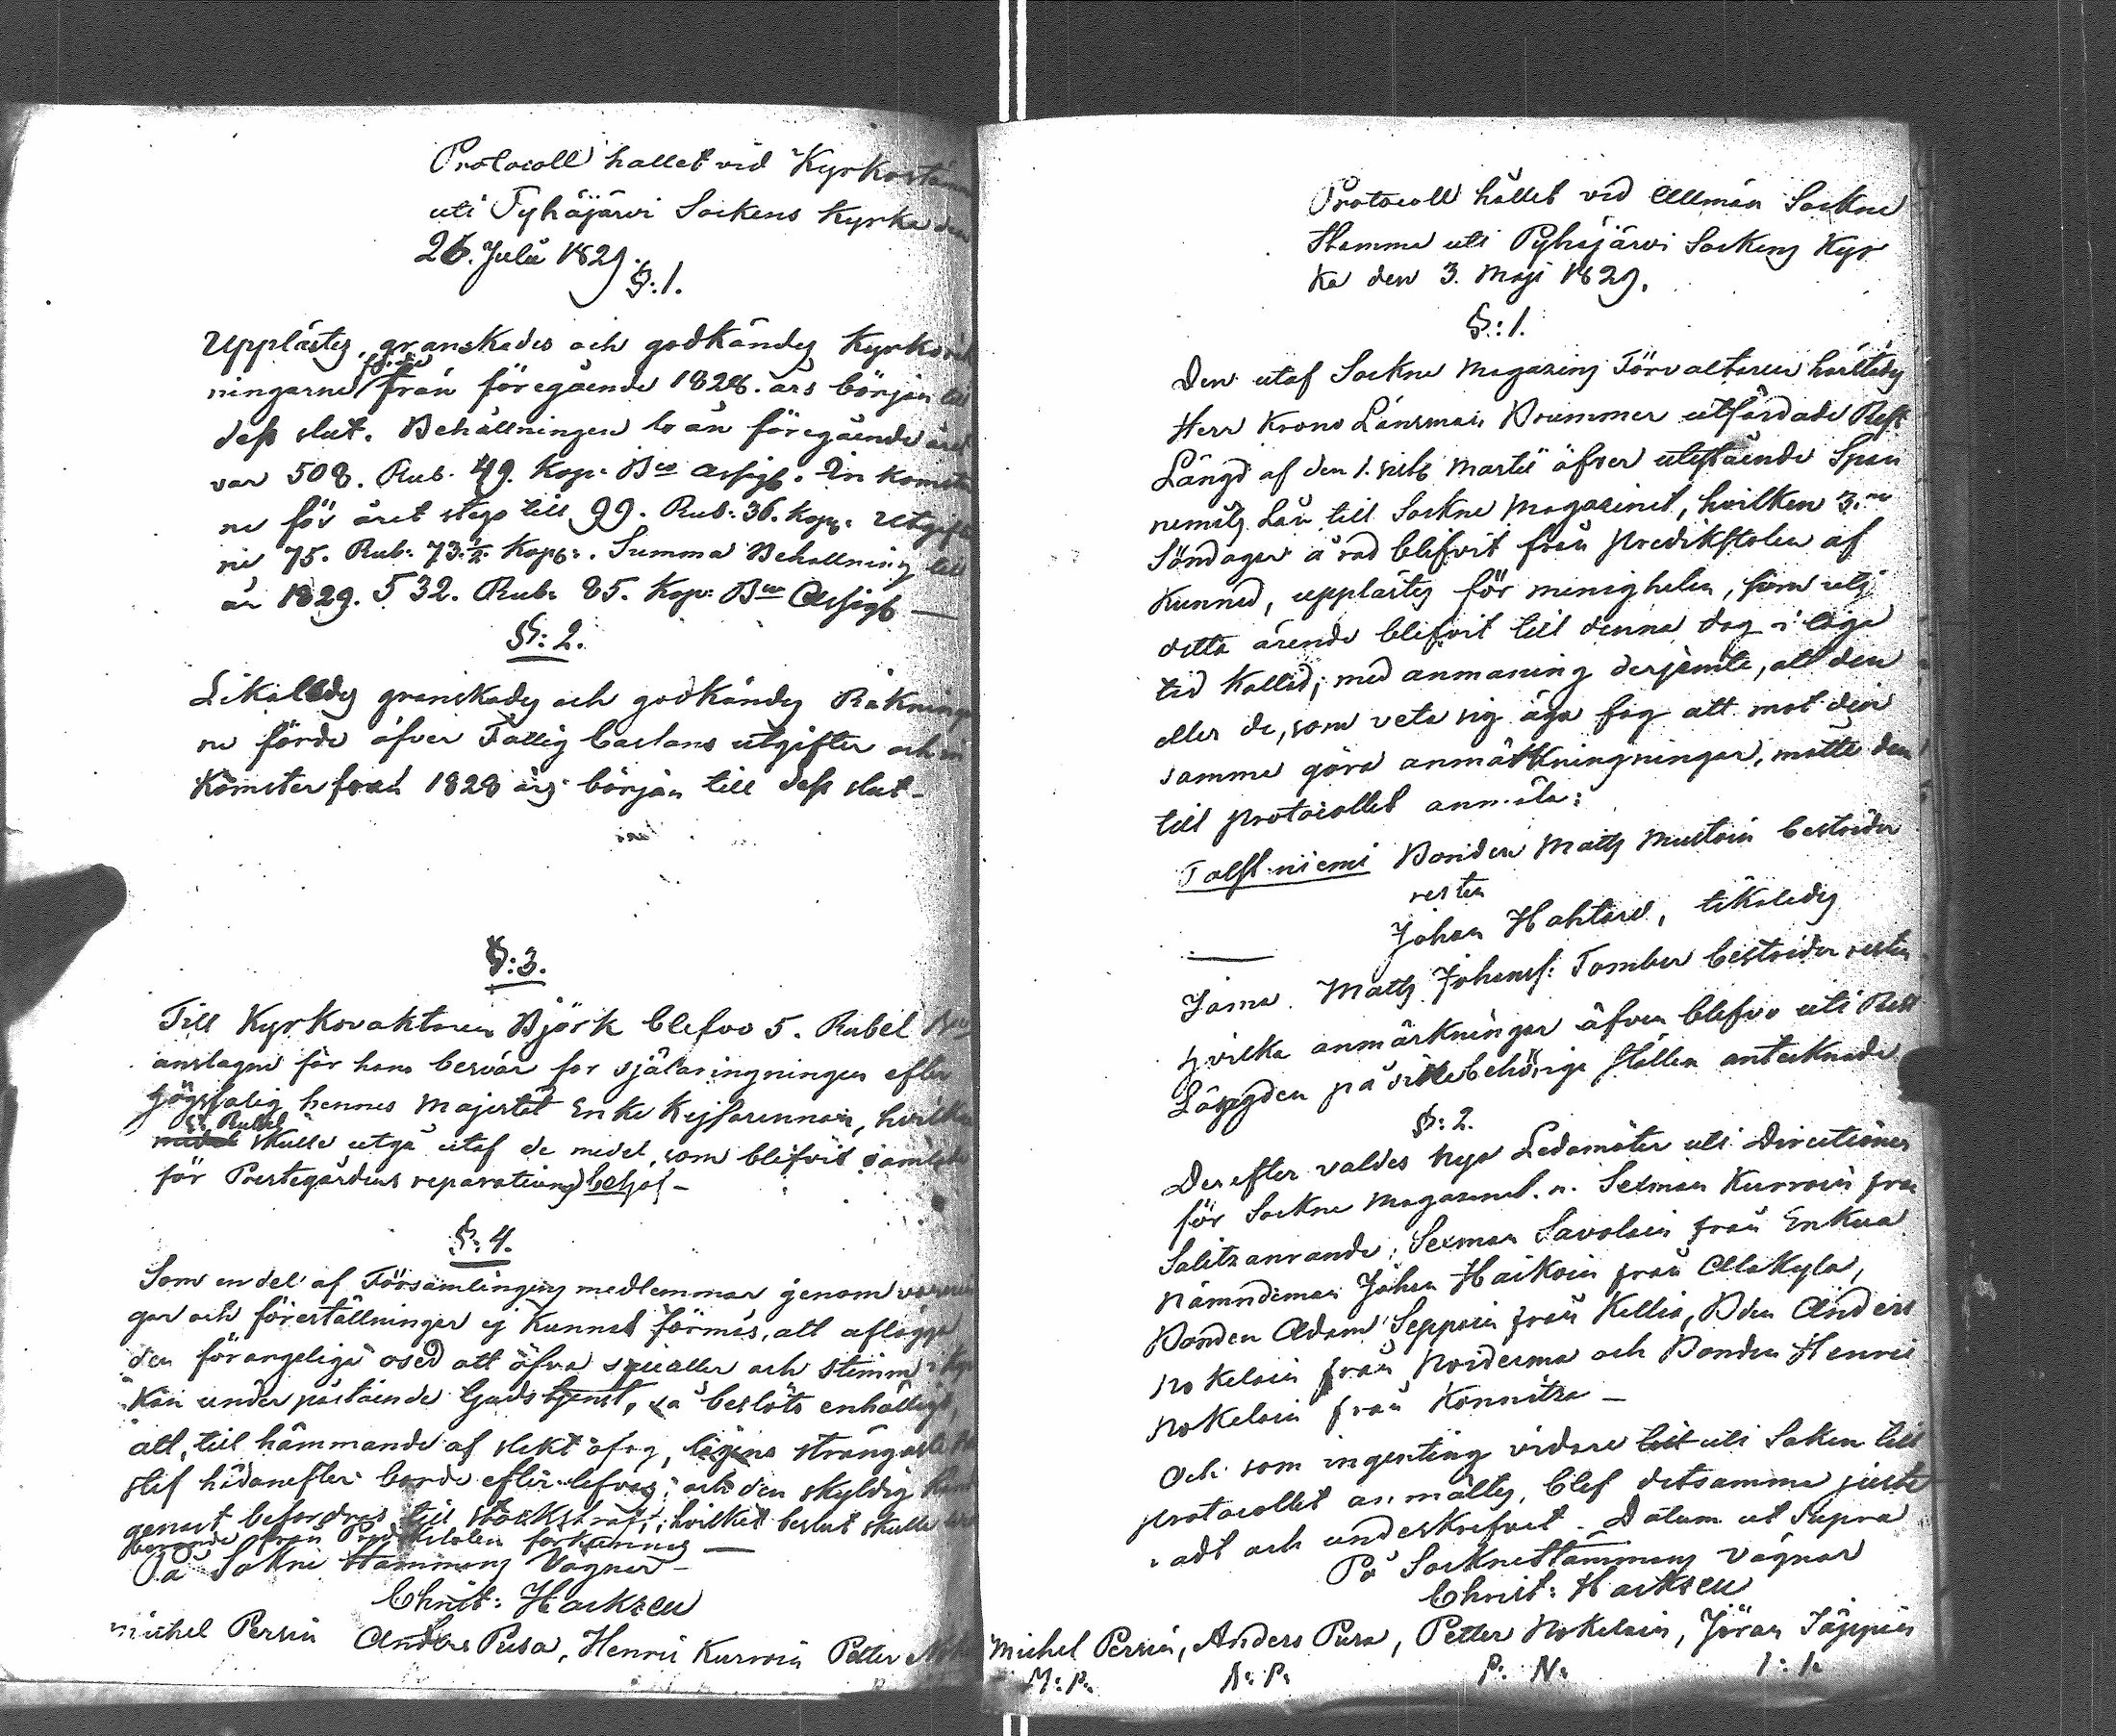 Protocoll hallet vid Kyrkostäm
uti Pyhäjärvi Sockens Kyrka den
26. Julii 1829.
§: 1.
Upplästes, granskades och godkändes Kyrkoräk
förde
ningarne från föregående 1828. års början till
dess slut. Behållningen från föregående året
var 508. Rub. 49. Kop. Bco Assigt. Inkomster
ne för året stego till 99. Rub: 36. kop: Utgifter
ne 75. Rub: 73.½. Kop: Summa Behallning till
år 1829. 532. Rub. 85. Kop: Bco Assigt —
§: 2.
Likaledes granskades och godkändes Räkningar
ne förde öfver Fattig Cassans utgifter och in
komster från 1828 års början till dess slut –
§: 3.
Till Kyrkovaktaren Björk blefvo 5. Rubel Bco
anslagne för hans besvär för själaringningen efter
Högstsalig hennes Majestät Enke Kejsarinnan, hvilka
5 Rubel
medel skulle utgå utaf de medel, som blifvit samlade
för Prestegårdens reparations behof –
§: 4.
Som en del af Församlingens medlemmar genom varnin
gar och föreställningar ej kunnat förmås, att aflägga
den förangeliga osed att öfva squaller och stimm i Kyr
kan under påstående Gudstjenst, så beslöts enhälligt,
att, till hämmande af slikt ofog, lagens strängaste
hädanefter borde efterlefvas; och den skyldig
genast befordras till stockstraff; hvilket beslut skulle
från Predikstolen förkunnas —
På Sokne Stämmans Vägnar –
Christ: Hacksell
Michel Persin Anders Pusa, Henric Kurvin Petter
Protocoll hållet vid Allmän Sockne
Stämma uti Pyhäjärvi Sockens Kyr
ka den 3. Maji 1829.
§: 1.
Den utaf Sockne Magazins Förvaltaren härstädes
Herr Krono Länsman Brummer utfärdade Rest
Längd af den 1. sistl Martii öfver utestående Span
nemåls Lån till Sockne Magazinet, hvilken 3.ne
Söndagar å rad blifvit från predikstolen af
kunnad, upplästes för menigheten, som uti
detta ärende blifvit till denna dag i laga
tid kallad; med anmaning derjemte, att den
eller de, som veta sig äga fog att mot den
samma göra anmärkningningar, måtte dem
till protocollet anmäla:
niemi Bonden Matts Mustoin bestrider
resten
Johan Hahtoin, likaledes
Jama. Matts Johanss: Tomber bestrider resten
Hvilka anmärkningar äfven blefvo uti Rest
Längden på sitt behöriga ställen antecknade
§: 2.
Derefter valdes nya Ledamöter uti Directionen
för Sockne Magazinet. n. Sexman Kurvoin från
Salitzanrande, Sexman Savolain från Enkua
Nämndeman Johan Haikoin från Alakyla,
Bonden Adam Seppoin från Kellia, Bden Anders
Nokelain från Noiderma och Bonden Henric
Nokelain från Konnitza –
Och som ingenting vidare till uti Saken till
protocollet anmältes, blef detsamma juste
radt och underskrifvet. Datum ut Supra
På Socknestämmans vägnar
Christ: Hacksell
Michel Persin, Anders Pusa, Petter Nokelain, Jöran Jäppin
M: P. A: P. P: N: I: I.